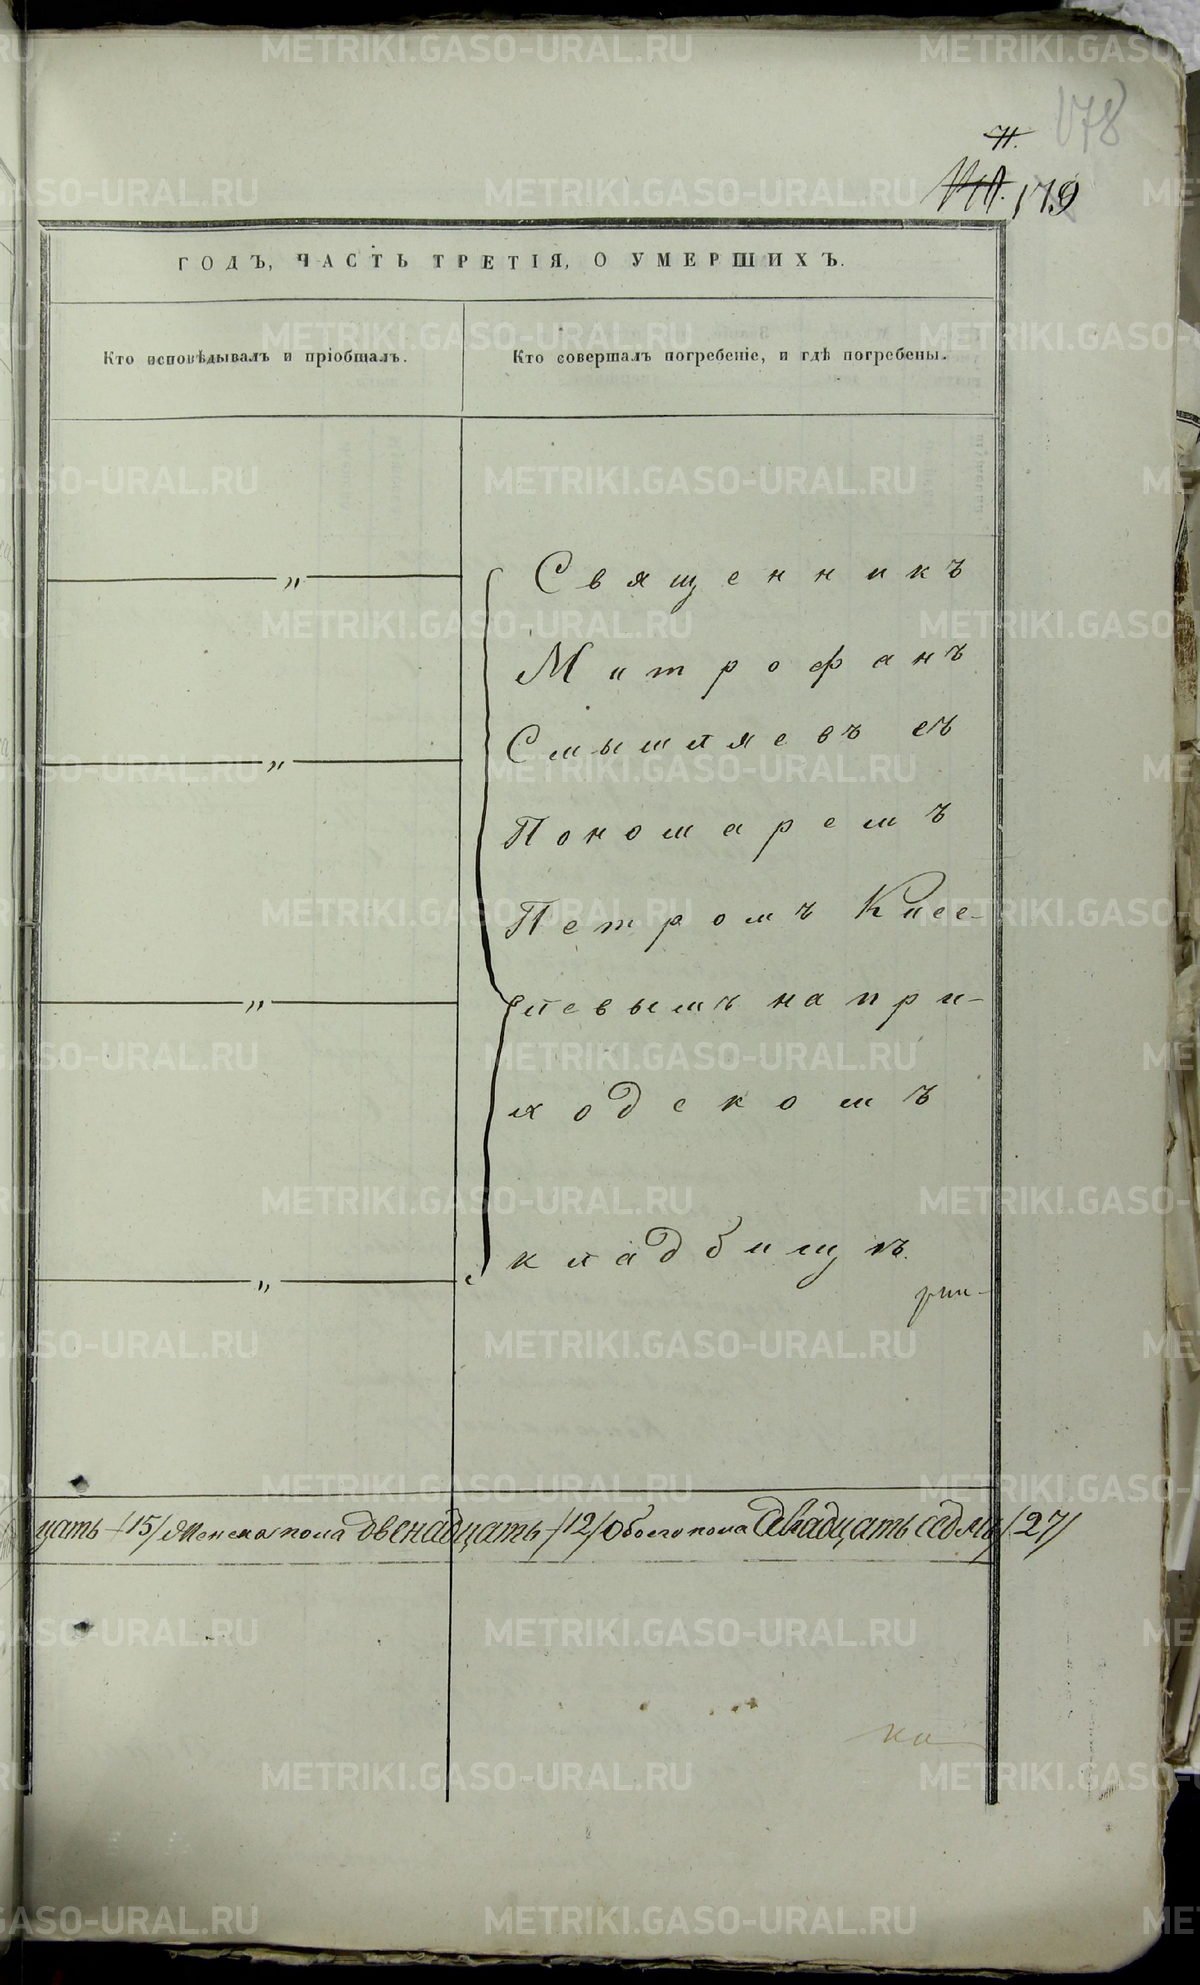 178
71.
179
ГОДЪ, ЧАСТЬ ТРЕТІЯ, О УМЕРШИХЪ.
Кто исповѣдывалъ и пріобщалъ.
Кто совершалъ погребеніе, и гдѣ погребены.
Священникъ
Митрофанъ
Смышляевъ съ
Пономаремъ
Петромъ Кисе-
левымъ на при-
ходскомъ
кладбищѣ
цать /15/ Женска пола двенадцать /12/ Обоего пола Двадцать седмь /27/
METRIKI.GASO-URAL.RU